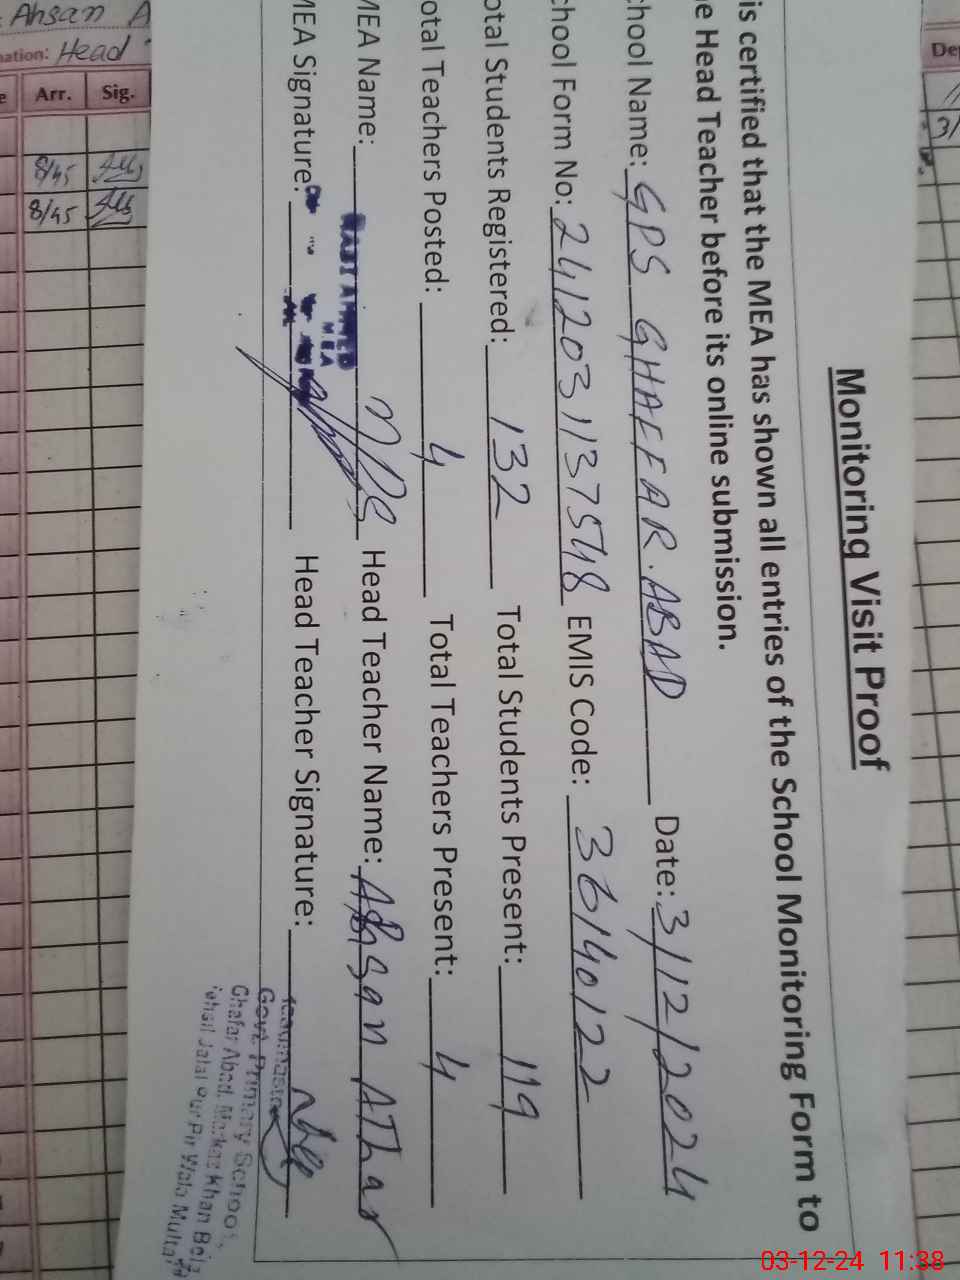 Monitoring Visit Proof
is certified that the MEA has shown all entries of the School Monitoring Form to
e Head Teacher before its online submission.
chool Name: GPS GHAFFAR.ABAD Date: 3/12/2024
chool Form No: 2412031137548 EMIS Code: 36140122
otal Students Registered: 132 Total Students Present: 119
otal Teachers Posted: 4 Total Teachers Present: 4
MEA Name: AHMED MEA Head Teacher Name: Ahsan AThar
MEA Signature: Head Teacher Signature:
Govt. Primary School,
Ghafar Abad, Markaz Khan Bela
Tehsil Jalal Pur Pir Wala Multan
Ahsan A
nation: Head
Arr. Sig.
8/45
8/45
De
3/
03-12-24 11:38